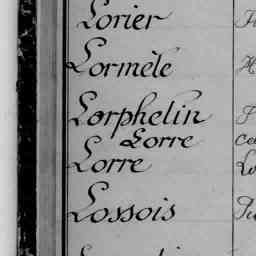 Lorier
Lormèle
Lorphelin
Lorre
Lorre
Lossois